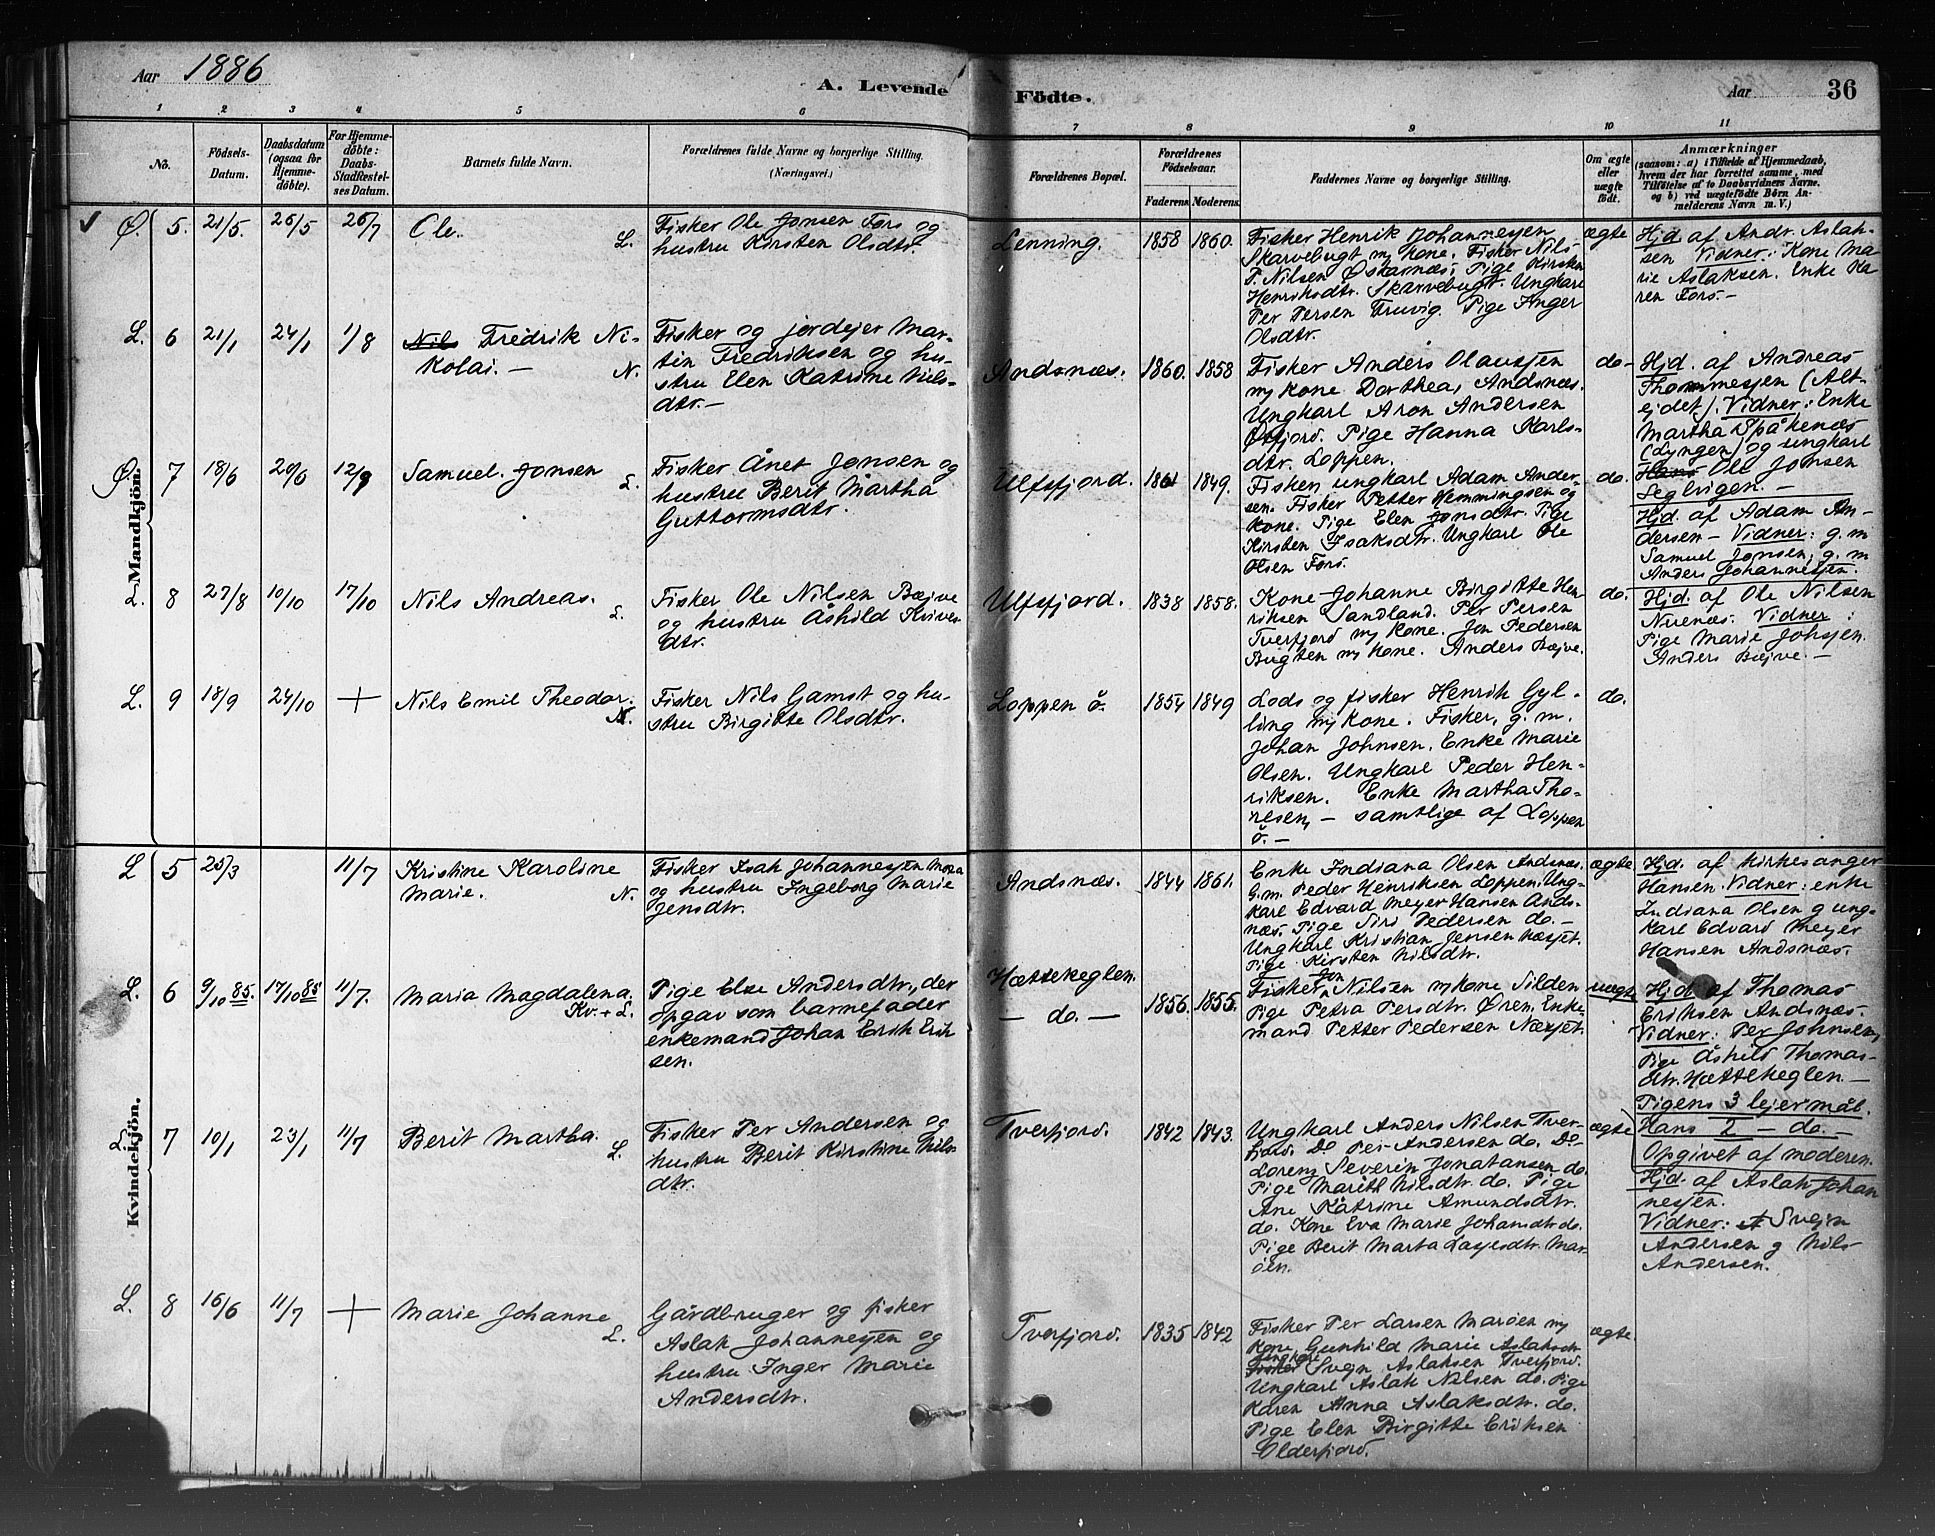 Aar 1886
A. Levende
Födte.
Aar
36
1 2 3 4 5 6 7 8 9 10 11
No.
Födsels-
Datum.
Daabsdatum
(ogsaa för
Hjemme-
döbte).
For Hjemme-
döbte:
Daabs-
Stadfæstel-
ses Datum.
Barnets fulde Navn.
Forældrenes fulde Navne og borgerlige Stilling.
(Næringsvei.)
Forældrenes Bopæl.
Forældrenes
Födselsaar.
Faderens. Moderens.
Faddernes Navne og borgerlige Stilling.
Om ægte
eller
uægte
födt.
Anmærkninger
(saasom: a) i Tilfælde af Hjemmedaab,
hvem der har forrettet samme, med
Tilföielse af to Daabsvidners Navne.
og b) ved uægtefödte Börn An-
melderens Navn m. V.)
Mandkjön.
Ø. 5. 21/5. 26/5 26/7 Ole. L.
Fisker Ole Jonsen Fors og
hustru Kirsten Olsdtr.
Lenning. 1858 1860.
Fisker Henrik Johannesen
Skarvebugt m/ Kone. Fisker Nils
P. Nilsen Øskarnæs. Pige Kirsten
Henriksdtr. Skarvebugt. Ungkarl
Per Persen Truvig. Pige Inger
Olsdtr.
ægte
Hjd af Andr. Aslak-
sen Vidner: Kone Ma-
rie Aslaksen. Enke Ka-
ren Fors.-
L. 6 21/1 24/1 1/8 Nils Fredrik Ni-
kolai. - N.
Fisker og jordejer Mar-
tin Fredriksen og hu-
stru Elen Katrine Niels-
dtr.-
Andsnæs. 1860. 1858
Fisker Anders Olaussen
m/ Kone Dorthea, Andsnæs.
Ungkarl Aron Andersen
Øxfjord. Pige Hanna Karls-
dtr. Loppen.
do-
Hjd. af Andreas
Thommesen (Alt-
ejdet). Vidner: Enke
Martha Spåkenæs
(Lyngen) og ungkarl
Hans Ole Jonsen
Seglvigen. -
Ø. 7 18/6 20/6 12/9 Samuel. Jonsen L.
Fisker Ånet Jonsen og
hustru Berit Martha
Guttormsdtr.
Ulfsfjord. 1861 1849.
Fisker, ungkarl Adam Ander-
sen. Fisker Petter Hemmingsen og
Kone. Pige Elen Jonsdtr. Pige
Kirsten Isaksdtr. Ungkarl Ole
Olsen Fors.
do.
Hjd. af Adam An-
dersen - Vidner: g.m
Samuel Jonsen, g.m
Anders Johannesen.
L. 8 27/8 10/10 17/10 Nils Andreas. L.
Fisker Ole Nilsen Bæjve
og hustru Åshild Kviver
dtr.
Ulfsfjord. 1838 1858.
Kone Johanne Birgitte Hen-
riksen Sandland. Per Persen
Tverfjord m/ Kone. Jon Pedersen
Bugten m/ Kone. Anders Bæjve.
do.
Hjd. af Ole Nilsen
Nuenæs. Vidner:
Pige Marie Johsen.
Anders Bæjve. -
L. 9 18/9 24/10 + Nils Emil Theodor. N.
Fisker Nils Gamst og hu-
stru Birgitte Olsdtr.
Loppen ö. 1854 1849
Lods og fisker Henrik Gyl-
ling m/ Kone. Fisker, g.m.
Johan Johnsen. Enke Marie
Olsen. Ungkarl Peder Hen-
riksen. Enke Martha Tho-
nesen, - samtlige af Loppen
ö.-
do.
Kvindekjön.
L 5 25/3 11/7 Kristine Karoline
Marie. N.
Fisker Isak Johannesen
og hustru Ingeborg Marie
Jensdtr.
Andsnæs. 1844 1861.
Enke Indiana Olsen Andsnæs.
G.m. Peder Henriksen Loppen. Ung-
karl Edvard Meyer Hansen Ands-
næs. Pige Siri Pedersen do.-
Ungkarl Kristian Jensen Næsset.
Pige Kirsten Nilsdtr.
ægte
Hjd. af kirkesanger
Hansen. Vidner: enke
Indiana Olsen g ung-
karl Edvard Meyer
Hansen Andsnæs.
L. 6 9/10 85. 17/10 85 11/7. Maria Magdalena.
Kv. + L.
Pige Else Andersdtr., der
opgav som barnefader
enkemand Johan Erik Erik
sen.
Hættekeglen.
- do. - 1856. 1855.
Fisker Jon Nilsen m/ Kone Silden
Pige Petra Persdtr. Øren. Enke-
mand Petter Pedersen Næsset.
uægte
Hjd. af Thomas
Eriksen Andsnæs.
Vidner: Per Johnsen,
Pige Åshild Thomas-
dtr. Hættekeglen. -
Pigens 3 lejermål.
Hans 2 - do. -
Opgivet af moderen.
L. 7 10/1 23/1 11/7 Berit Martha. L.
Fisker Per Andersen og
hustru Berit Kirstine Nils
dtr.
Tverfjord. 1842 1843.
Ungkarl Anders Nilsen Tver-
fjord. Do Per Andersen do. Do-
Lorenz Severin Jonatansen do.
Pige Marith Nilsdtr. do. Pige
Ane Katrine Amundsdtr.
do. Kone Eva Marie Johansdtr do.
Pige Berit Marta Lassesdtr. Mar-
öen.
ægte
Hjd. af Aslak Johan
nesen.
Vidner: Svejn
Andersen g Nils
Andersen.
L. 8 16/6 11/7 + Marie Johanne L.
Gårdbruger og fisker
Aslak Johannesen og
hustru Inger Marie
Andersdtr.
Tverfjord. 1835 1842
Fisker Per Larsen Maröen m/
Kone Gunhild Marie Aslaksdtr
Fisker Ungkarl Svejn Aslaksen Tverfjord.
Ungkarl Aslak Nilsen do. Pige
Karen Anna Aslaksdtr. do.
Pige Elen Birgitte Eriksen
Olderfjord.
ægte